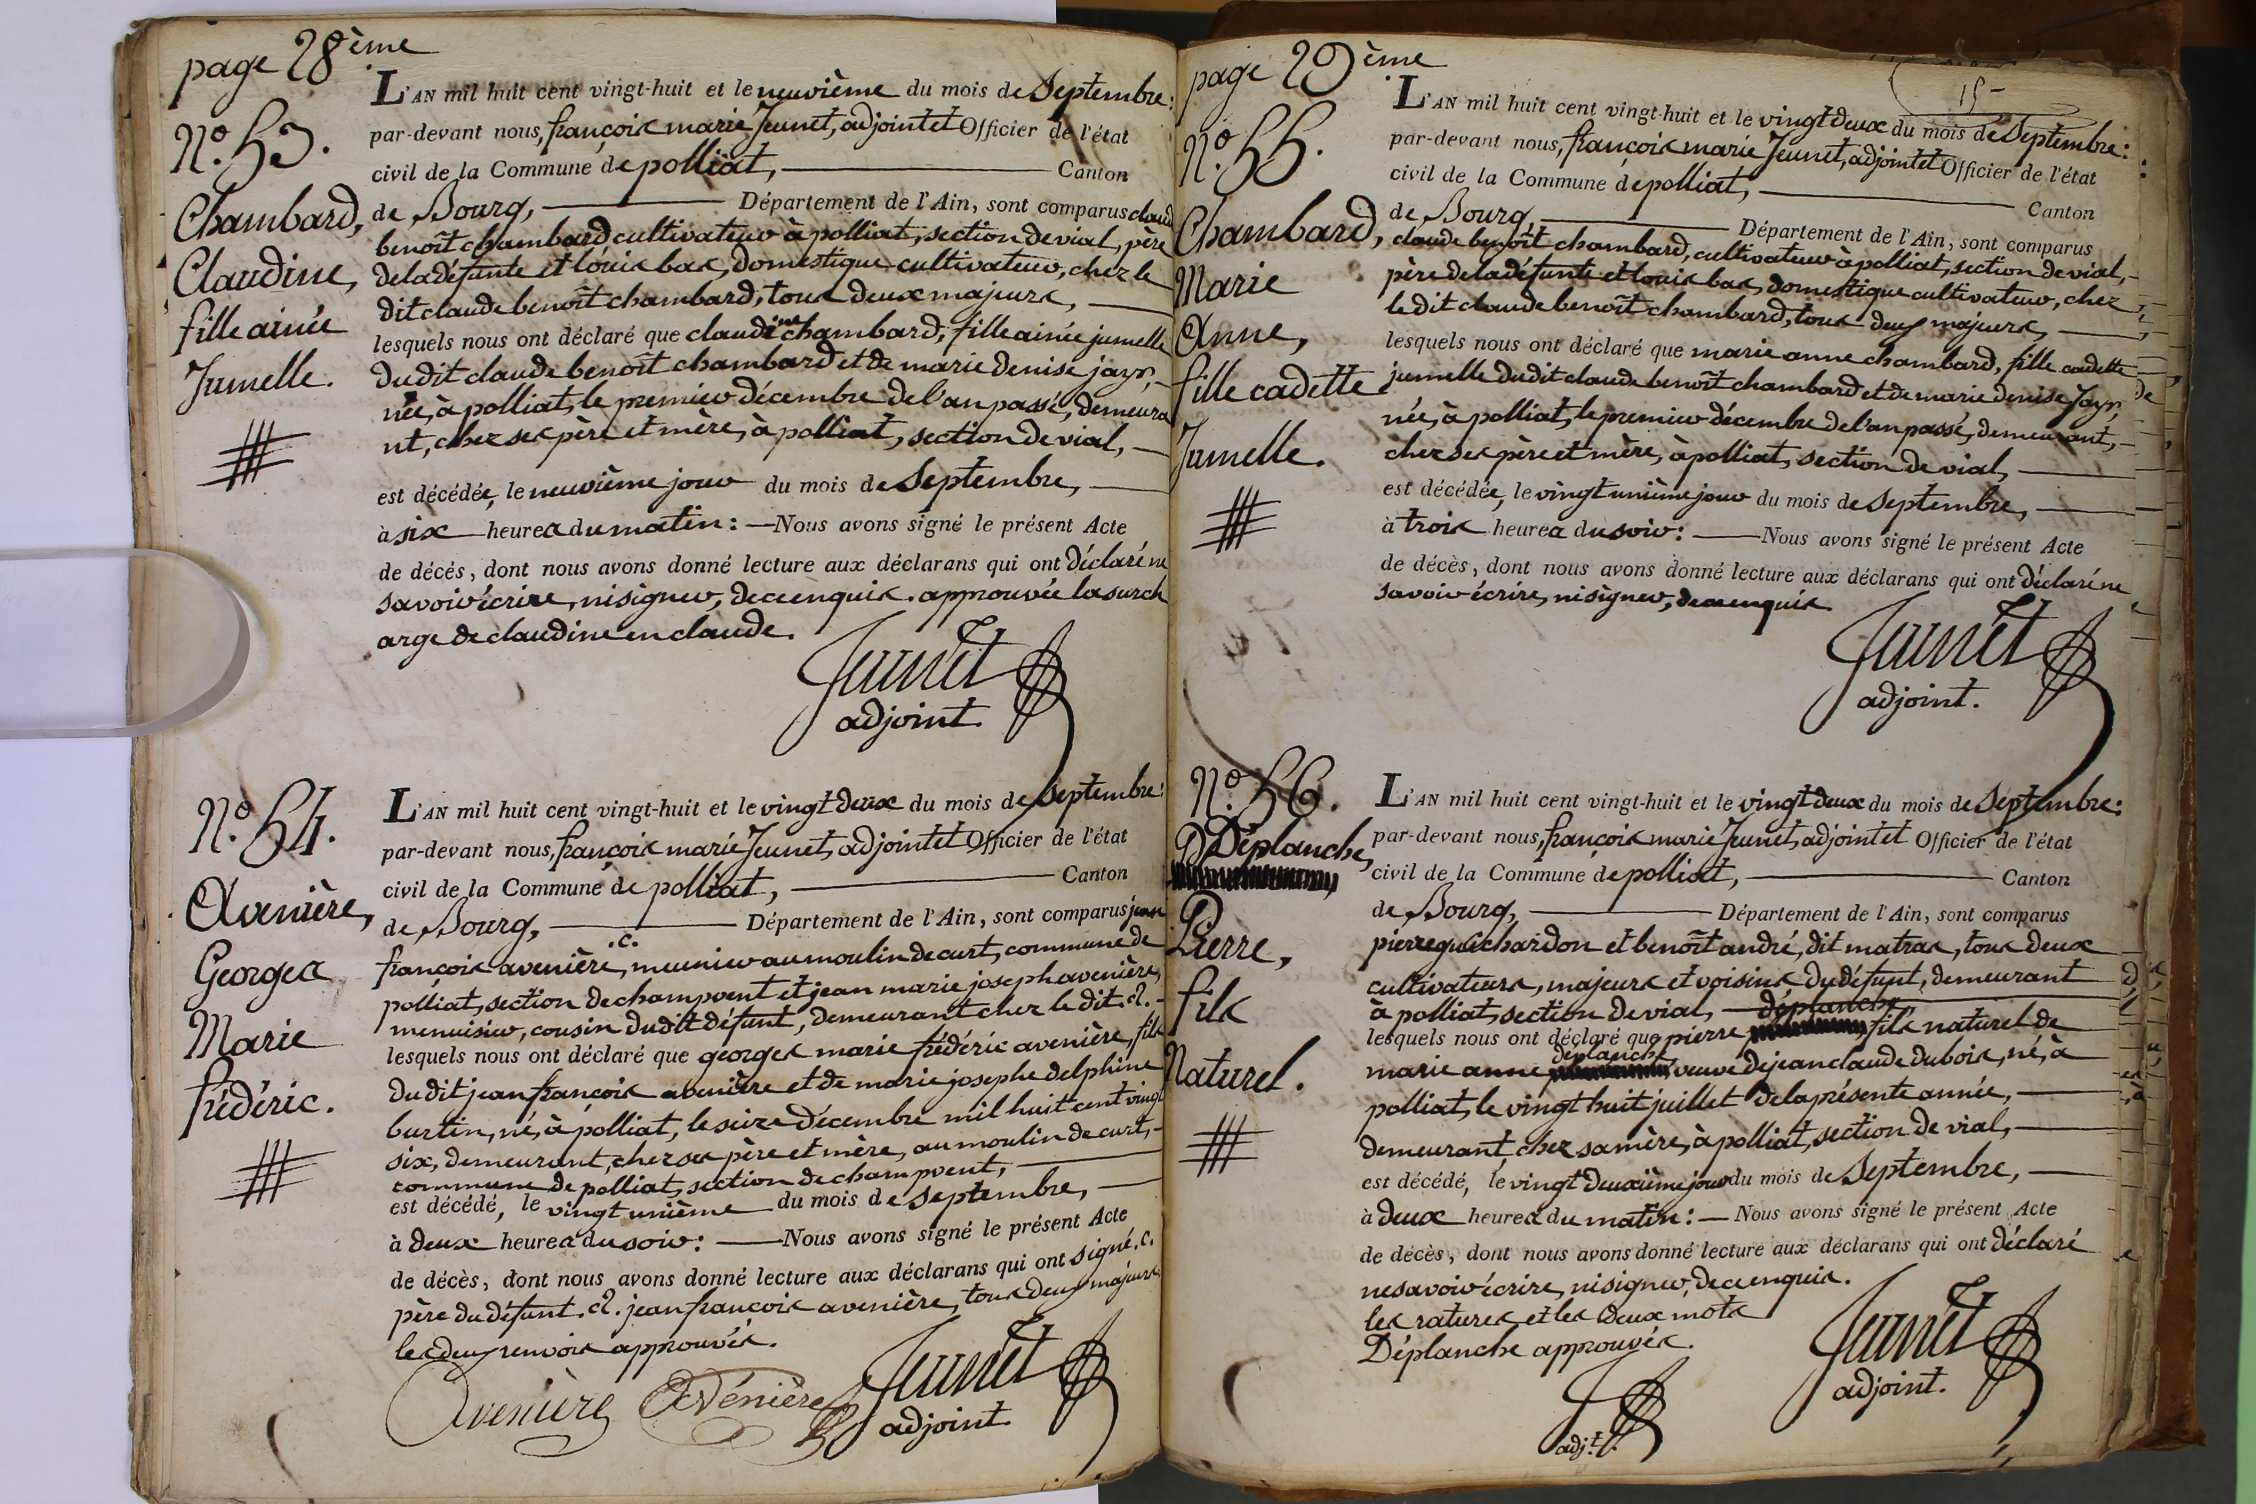 page 28ème
N.° 53.
Chambard,
Claudine,
fille ainée
Jumelle.
L'AN mil huit cent vingt-huit et le neuvième du mois de Septembre:
par-devant nous, françois marie Jeunet, adjoint et Officier de l'état
civil de la Commune de polliat, Canton
de Bourg, Département de l'Ain, sont comparus claude
benoît chambard cultivateur à polliat, section de vial, père
de la défunte et louis bas, domestique cultivateur, chez le
dit claude benoît chambard, tous deux majeurs,
lesquels nous ont déclaré que claudine chambard, fille ainée jumelle
du dit claude benoît chambard et de marie denise jayr,
née, à polliat, le premier décembre de l'an passé, demeura
nt, chez ses père et mère, à polliat, section de vial,
est décédée, le neuvième jour du mois de Septembre,
à six heures du matin: Nous avons signé le présent Acte
de décés, dont nous avons donné lecture aux déclarans qui ont déclaré ne
savoir écrire, ni signer, de ce enquis. approuvée la surch
arge de claudine en claude.
Jeunet
adjoint.
N.° 54.
Avenière,
Georges
Marie
frédéric.
L'AN mil huit cent vingt-huit et le vingt deux du mois de Septembre:
par-devant nous, françois marie Jeunet, adjoint et Officier de l'état
civil de la Commune de polliat, Canton
de Bourg, Département de l'Ain, sont comparus jean
.C.
françois avenière, meunier au moulin de curt, commune de
polliat, section de champvent et jean marie joseph avenière,
menuisier, cousin du dit défunt, demeurant chez le dit .Cl.
lesquels nous ont déclaré que georges marie frédéric avenière, fils
du dit jean françois avenière et de marie josephe delphine
burtin, né, à polliat, le seize décembre mil huit cent vingt
six, demeurant, chez ses père et mère, au moulin de curt,
commune de polliat, section de champvent,
est décédé, le vingt unième du mois de septembre,
à deux heures du soir: Nous avons signé le présent Acte
de décès, dont nous avons donné lecture aux déclarans qui ont signé .C.
père du défunt .Cl. jean françois avenière, tous deux majeurs
les deux renvois approuvés.
Avenière Avénière Jeunet
adjoint
page 29ème
15
N.° 55.
Chambard,
Marie
Anne,
fille cadette
Jumelle.
L'AN mil huit cent vingt-huit et le vingt deux du mois de Septembre:
par-devant nous, françois marie Jeunet, adjoint et Officier de l'état
civil de la Commune de polliat, Canton
de Bourg, Département de l'Ain, sont comparus
claude benoît chambard, cultivateur à polliat, section de vial,
père de la défunte et louis bas, domestique cultivateur, chez
le dit claude benoît chambard, tous deux majeurs,
lesquels nous ont déclaré que marie anne chambard, fille cadette
jumelle du dit claude benoît chambard et de marie denise Jayr,
née, à polliat, le premier décembre de l'an passé, demeurant,
chez ses père et mère, à polliat, section de vial,
est décédée, le vingt unième jour du mois de Septembre,
à trois heures du soir: Nous avons signé le présent Acte
de décès, dont nous avons donné lecture aux déclarans qui ont déclaré ne
savoir écrire, ni signer, de ce enquis
Jeunet
adjoint.
N.° 56.
Déplanche,
Pierre,
fils
Naturel.
L'AN mil huit cent vingt-huit et le vingt deux du mois de Septembre:
par-devant nous, françois marie Jeunet, adjoint et Officier de l'état
civil de la Commune de polliat, Canton
de Bourg, Département de l'Ain, sont comparus
pierre guichardon et benoît andré, dit matras, tous deux
cultivateurs, majeurs et voisins, du défunt, demeurant
à polliat, section de vial, déplanche,
lesquels nous ont déclaré que pierre fils naturel de
déplanche
marie anne veuve de jean claude dubois, né, à
polliat, le vingt huit juillet de la présente année,
demeurant, chez sa mère, à polliat, section de vial,
est décédé, le vingt deuxième jour du mois de Septembre,
à deux heures du matin: Nous avons signé le présent Acte
de décès, dont nous avons donné lecture aux déclarans qui ont déclaré
ne savoir écrire, ni signer, de ce enquis.
les ratures et les deux mots
Déplanche approuvés.
Jeunet
adjoint.
adj.t